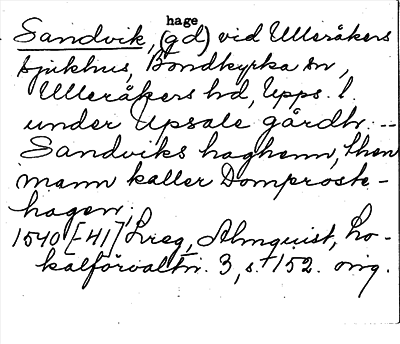 hage
Sandvik, (gd) vid Ulleråkers
sjukhus, Bondkyrka sn,
Ulleråkers hd, Upps. l.
under Upsale gårdh. --
Sandviks haghenn, then
mann kaller Domproste-
hagen;
1540 [-41] Lreg, Almquist, Lo-
kalförvaltn. 3, s. 152. orig.